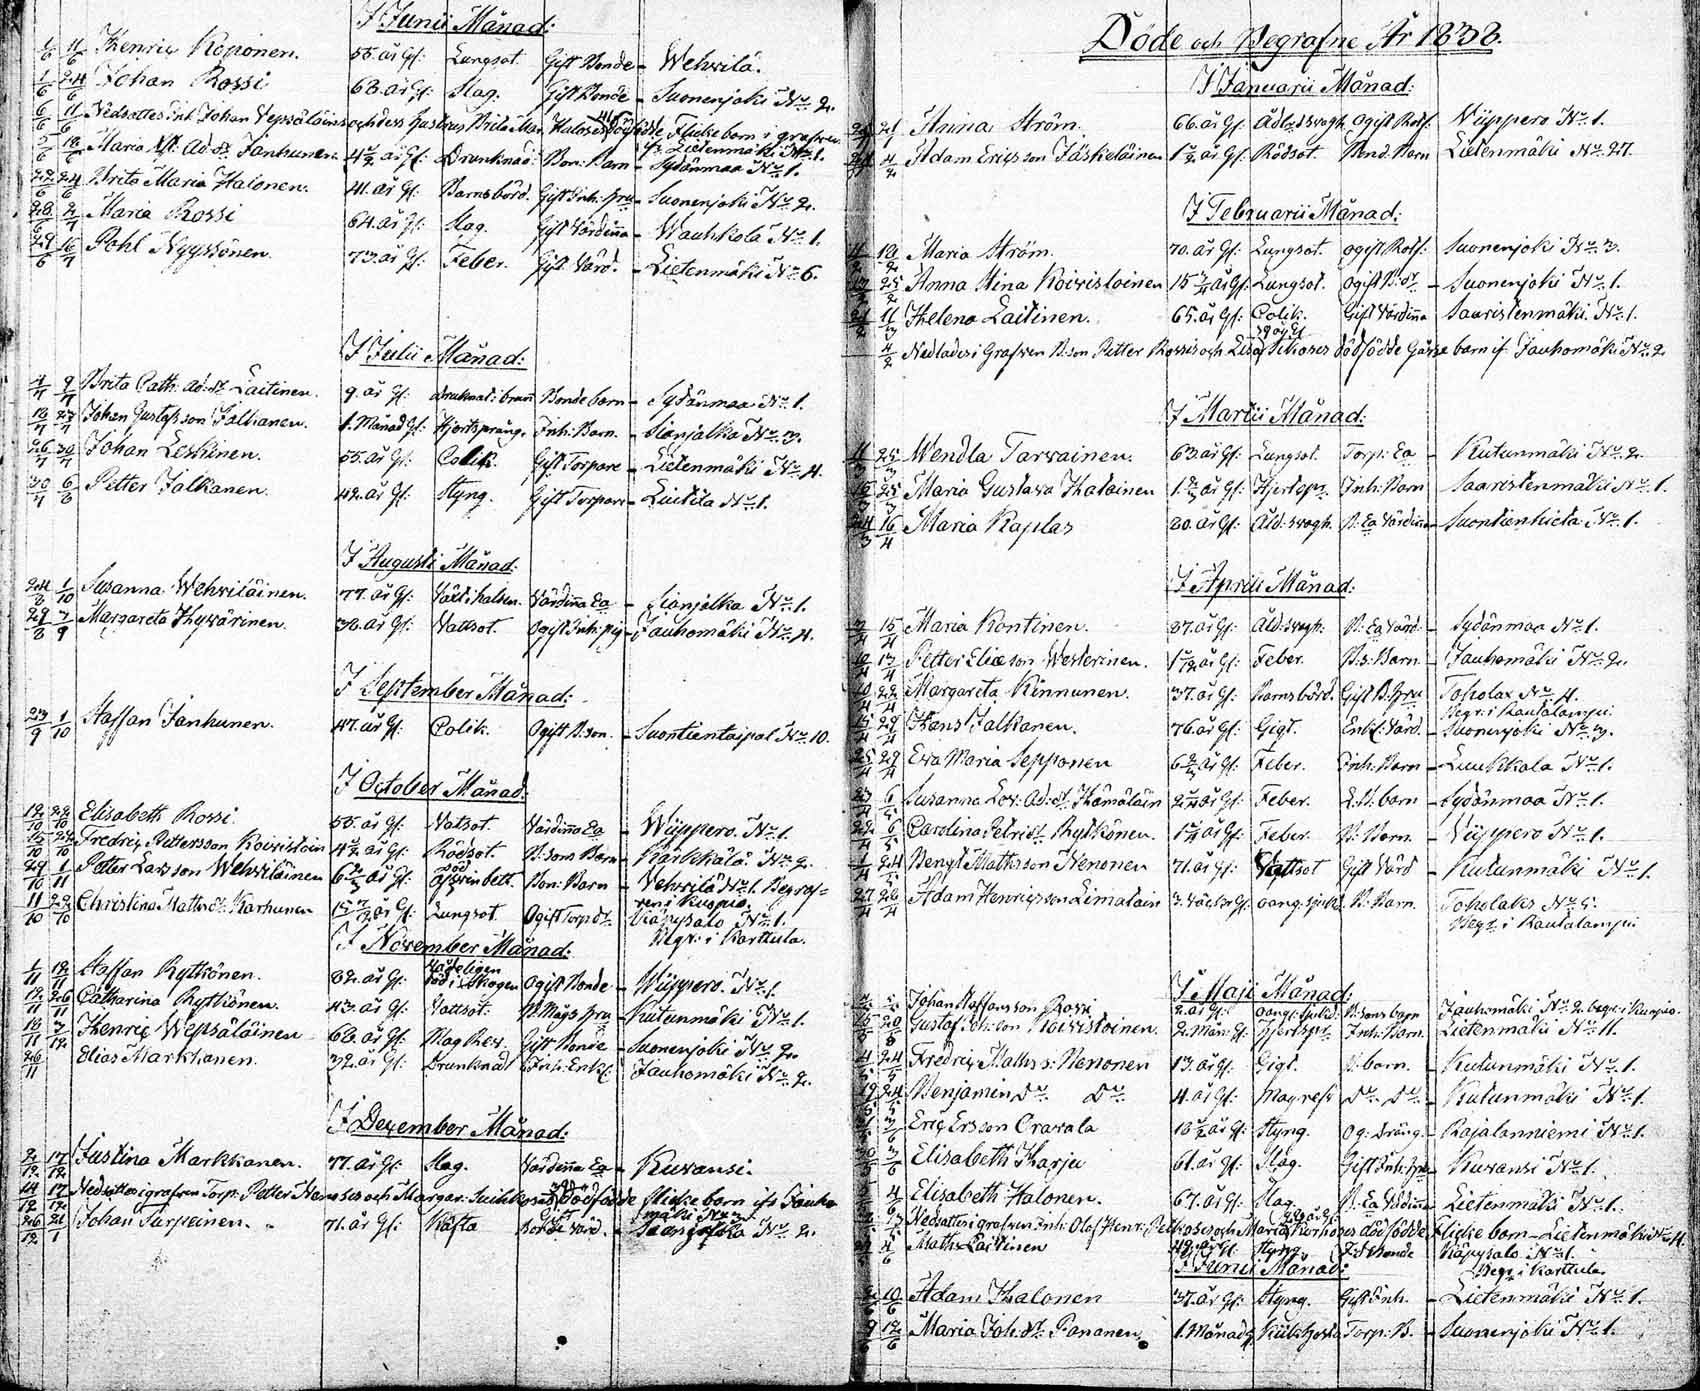 I Junii Månad:
1/6 11/6 Henric Koponen. 55. år Gl: Lungsot. Gift Bonde – Wehvilä.
1/6 24/6 Johan Rossi 68. år Gl: Slag. Gift Bonde – Suonenjoki No 2.
6/6 11/6 Nedsattes Inh. Johan Vepsäläins och dess hustrus Brita Mar. Halonens dödfödde Flickebarn i grafven
if. Lietenmäki No 1.
5/6 18/6 Maria Ad: dr Janhunen. år Gl: Drunknad: Bon: Barn – Sydänmaa No 1.
22/6 24/6 Brita Maria Halonen. 41. år Gl: Barnsbörd. Gift Inh: hru – Suonenjoki No 2.
28/6 2/7 Maria Rossi 64. år Gl: Slag. Gift Värdinna – Wauhkola No 1.
29/6 16/7 Pohl Nyyssönen. 73. år Gl: Feber. Gift Värd. – Lietenmäki No 6.
I Julii Månad:
4/7 9/7 Brita Cath: Ad: dr Laitinen. 9. år Gl: Druknad i brunn Bonde barn – Sydänmaa No 1.
18/7 27/7 Johan Gustafsson Jalkanen. 1. Månad Gl: Hjertsprång. Inh: Barn. – Sianjalka No 3.
26/7 30/7 Johan Leskinen. 55. år Gl: Colik. Gift Torpare – Lietenmäki No 4.
30/7 6/8 Petter Jalkanen. 42. år Gl: Styng. Gift Torpare – Luttila No 1.
I Augusti Månad:
24/8 1/10 Susanna Wehviläinen. 77. år Gl: Växt i halsen. Värdinna Ea – Sianjalka No 1.
29/8 7/9 Margareta Hyvärinen. 38. år Gl: Vattsot. Ogift Inh: pig – Jauhomäki No 4.
I September Månad:
23/9 1/10 Staffan Janhunen. 47. år Gl: Colik. Ogift B: son. – Suontientaipal No 10.
I October Månad:
12/10 22/10 Elisabeth Rossi 55. år Gl: Vatsot. Värdinna Ea – Wiippero. No 1.
Fredric Pettersson Koivistoin år Gl: Rödsot. B: Sons Barn – Karkkala. No 2.
29/10 1/11 Petter Larsson Wehviläinen år Gl: Bon: Barn – Vehvilä No 1. Begraf-
ven i Kuopio.
11/10 22/10 Christina Matts dr Karhunen år Gl: Lungsot. Ogift Torp dr Käpysalo No 1.
Begr: i Karttula.
I November Månad:
1/11 12/11 Staffan Rytkönen. 82. år Gl: död i Skogen Ogift Bonde – Wiippero. No 1.
12/11 26/11 Catharina Rytkönen. 43. år Gl: Vattsot. B: Mågs hru – Kutunmäki No 1.
18/11 7/12 Henric Wepsäläinen 68. år Gl: Mag Rev. Gift Bonde – Suonenjoki No 2.
26/11 Elias Markkanen. 32. år Gl: Drunknad Inh: Enkl: Jauhomäki No 2.
I December Månad:
2/12 17/12 Justina Markkanen. 77. år Gl: Slag. Värdinna Ea – Kuvansi.
14/12 17/12 Nedsattes i grafven Torp: Petter och Margar: dödfödde Flickebarn ifr Jauho
mäki No 2.
26/12 21/1 Johan Turpeinen. 71. år Gl: Håfta Bonde Värd. – No 2.
Döde och Begrafne År 1838.
I Januarii Månad:
Anna Ström. 66. år Gl: Åld: svagh Ogift Rotf: Wiippero No 1.
Adam Ericsson Jäskeläinen år Gl: Rödsot. Bond: Barn Lietenmäki No 27.
I Februarii Månad:
Maria Ström. 70. år Gl: Lungsot. ogift Rotf: Suonenjoki No 3.
Anna Stina Koivistoinen 15 år Gl: Lungsot. ogift B: dr – Suonenjoki No 1.
Helena Laitinen. 65. år Gl: Colik. Gift Värdinna Saaristenmäki No 1.
4/2 Nedlades i Grafven B: son Petter Rossis och Lisa dödfödde Gåsse barn if Jauhomäki No 2
I Martii Månad:
Wendla Tarvainen. 63. år Gl: Lungsot. Torp: Ea – Kutunmäki No 2.
Maria Gustava Hatainen år Gl: Hjertspr. Inh: Barn Saaristenmäki No 1.
24/3 16/4 Maria Kaplas 80. år Gl: Åld: svagh. B: Ea Värdinna – Suontienhieta No 1.
I April Månad:
Maria Kontinen. 87. år Gl: Åld: svagh: B: Ea Värd: – Sydänmaa No 1.
Petter Eliæson Westerinen. år Gl: Feber. B: s: Barn – Jauhomäki No 2.
Margareta Kinnunen. 37. år Gl: Barnsbörd. Gift B: hru Toholax No 4.
Begr: i Rautalampi.
Hans Jalkanen. 76. år Gl: Gigt. Enkl: Värd. – Suonenjoki No 3.
25/4 29/4 Eva Maria Sepponen år Gl: Feber. Inh: Barn – Luukkola No 1.
Susanna Lov: Ad: dr Hämäläin år Gl: Feber. B: barn – Sydänmaa No 1.
Carolina Petri dr Rytkönen. år Gl: Feber. B: Barn. – Wiippero No 1.
Bengt Mathsson Nenonen 71. år Gl: Vattsot Gift Värd – Kutunmäki No 1.
Adam Henricsson Limatain 3. Veckor Gl: gång. sjuk: B: Barn. Toholaks No 5.
Begr. i Rautalampi.
I Maji Månad:
Johan Staffansson Rossi 2. år Gl: gång: sjukd: B: sons barn Jauhomäki No 2 begr: i Kuopio.
Gustaf Joh: son Koivistoinen. 2. Mån: Gl: Hjertspr: Inh: Barn. Lietenmäki No 11.
Fredric Maths s: Nenonen 13. år Gl: Gigt. B: barn. – Kutunmäki No 1.
Benjamin Do Do 4. år Gl: Magrefv Do Do – Kutunmäki No 1.
Eric Ersson Oravala 18 år Gl: Styng. Og: dräng. – Rajalanniemi No 1.
Elisabeth Harju 61. år Gl: Slag. Gift Inh: hru – Kuvansi No 1.
Elisabeth Halonen. 67. år Gl: Slag. B: Ea Värdinna Lietenmäki No 1.
Nedsattes i grafven Inh: Olof Henr: och Maria Korhoses dödfödde Flicke barn – Lietenmäki No 4.
Maths Laitinen 42. år Gl: Styng. Gift Bonde Käpysalo No 1.
Begr: i Karttula
I Junii Månad:
2/6 10/6 Adam Halonen 37. år Gl: Styng. Gift Inh. – Lietenmäki No 1.
9/6 12/6 Maria Joh: dr Pananen. 1. Månad Kikhosta Torp: B. – Suonenjoki No 1.